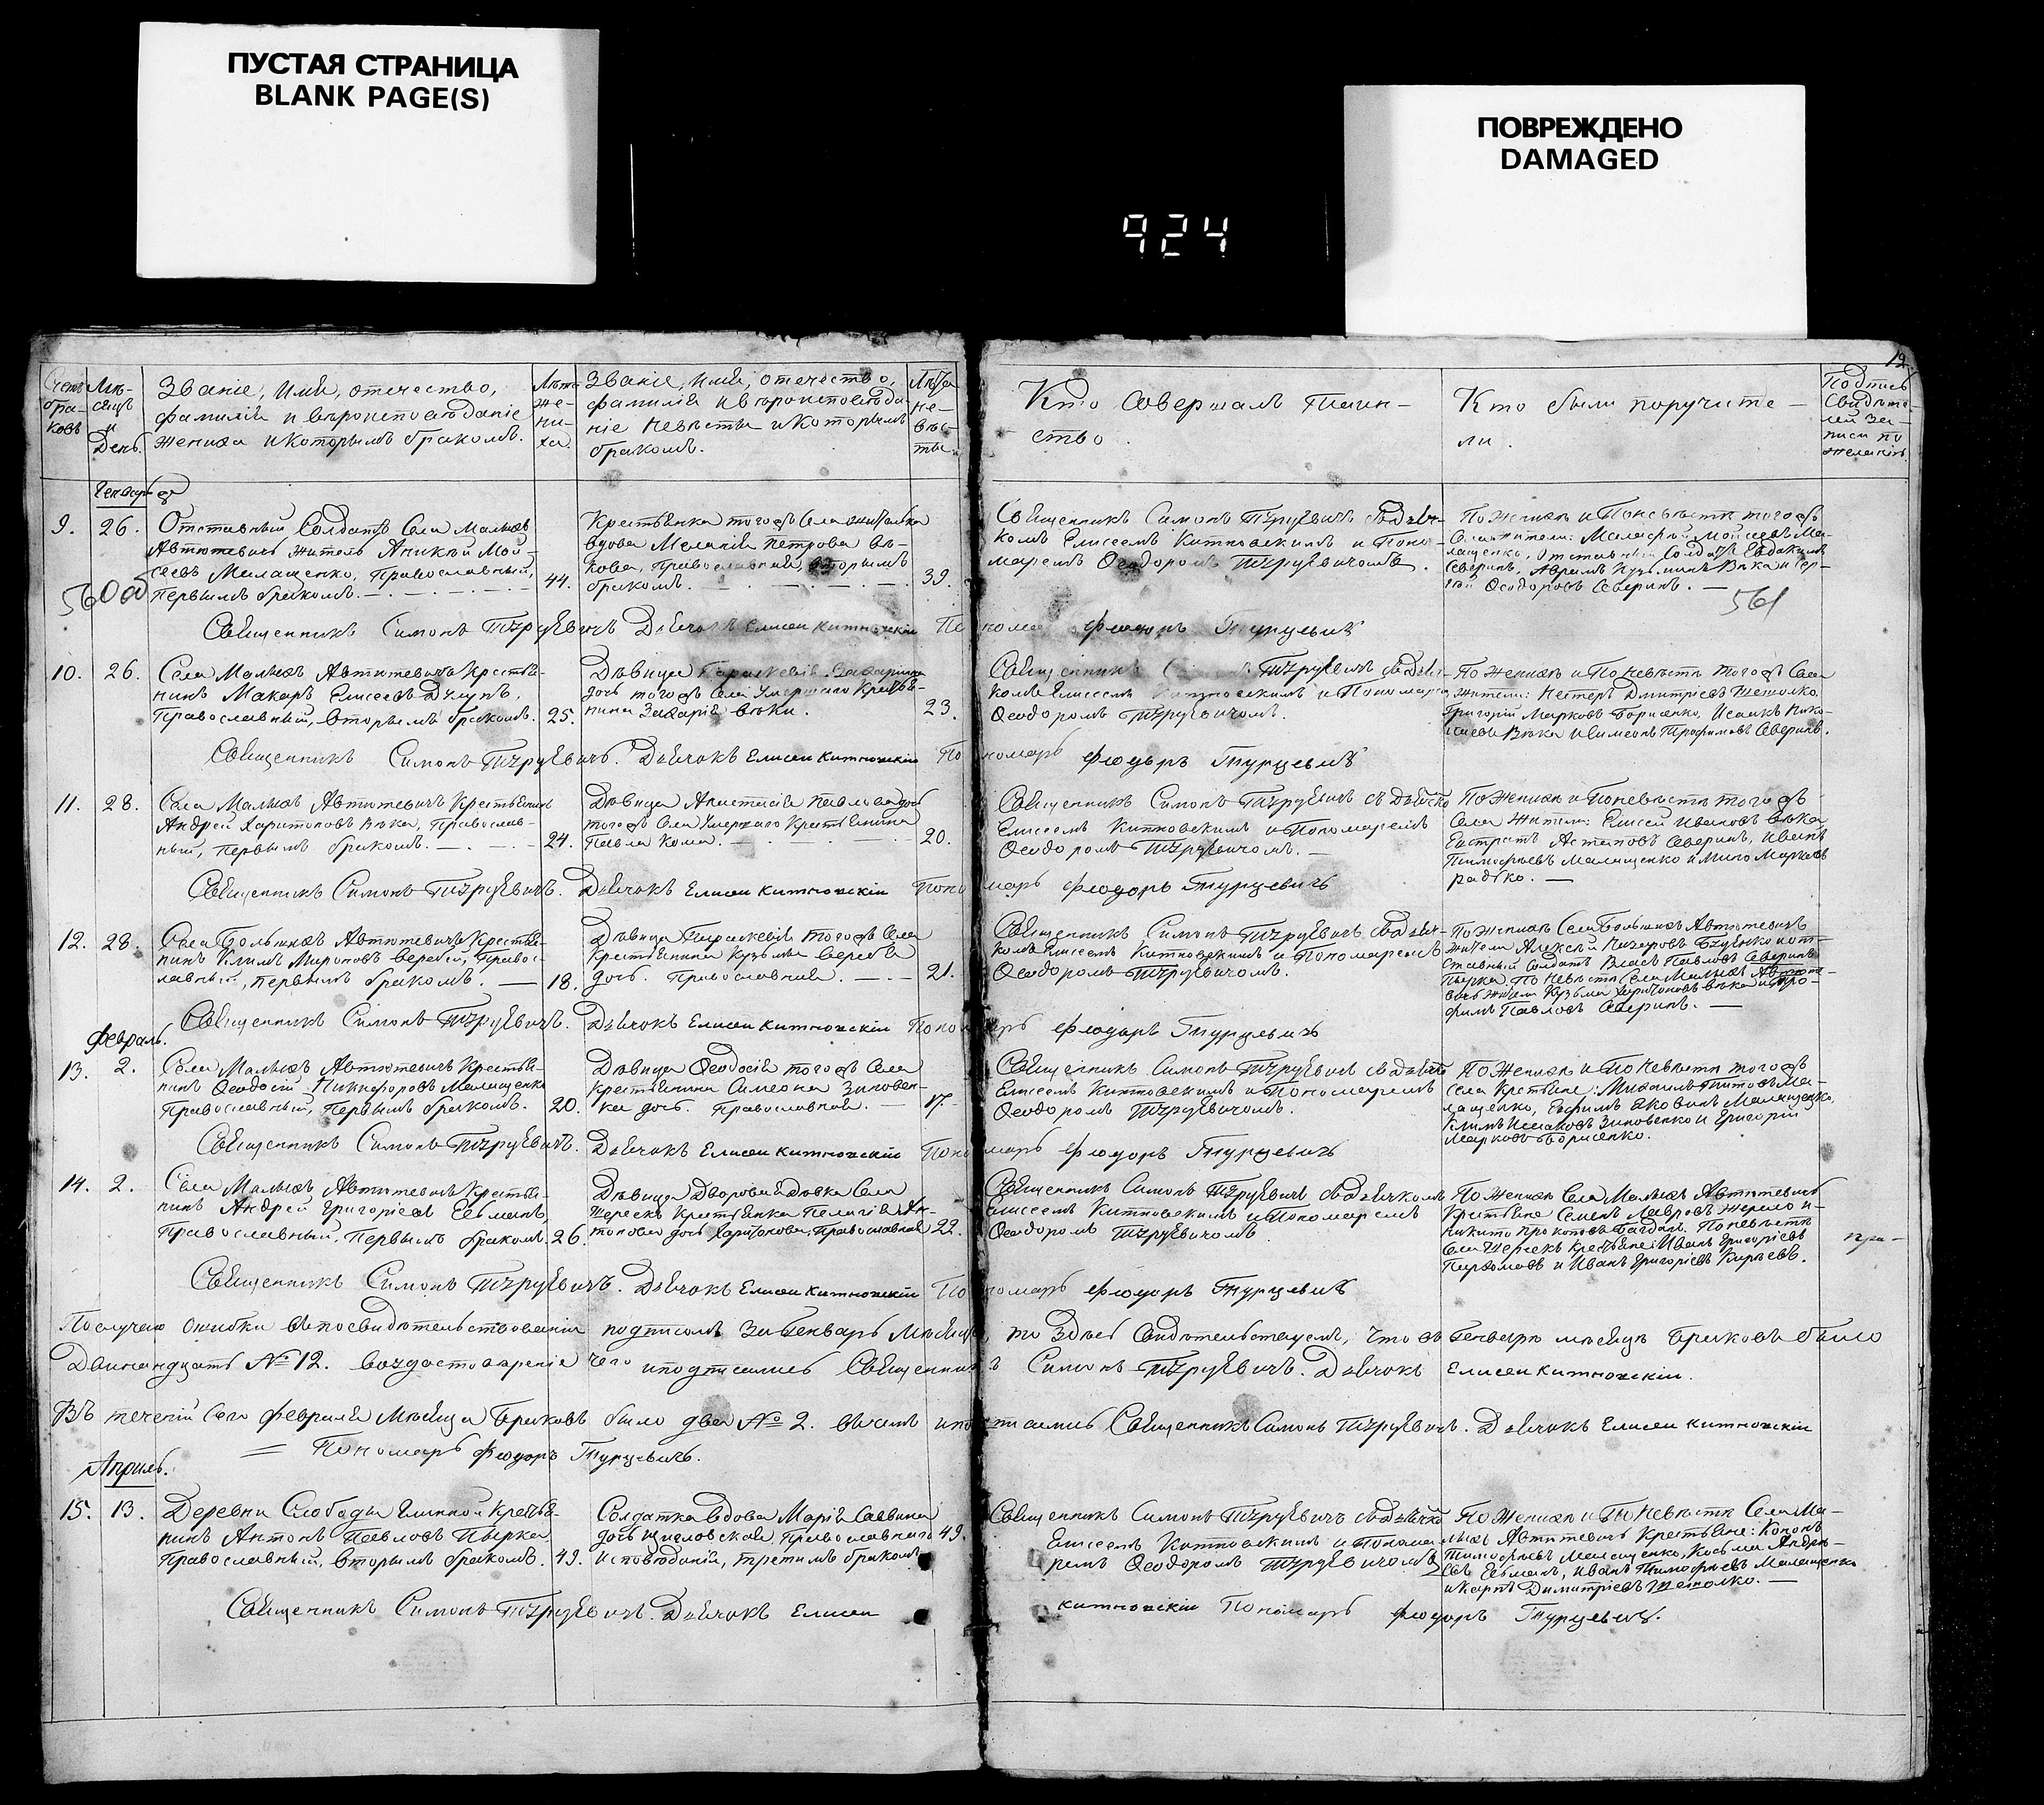 ПУСТАЯ СТРАНИЦА
BLANK PAGE(S)
ПОВРЕЖДЕНО
DAMAGED
924
12
Счетъ бра-ковъ
Мѣ-сяцъ и День.
Званіе, имя, отечество,
фамилія и вѣроисповѣданіе
жениха и которымъ бракомъ.
Лѣта же-ни-ха.
Званіе, имя, отечество,
фамилія и вѣроисповѣда-
ніе невѣсты и которымъ
бракомъ.
Лѣта не-вѣс-ты.
Кто совершалъ таин-
ство.
Кто были поручите-
ли.
Подпись
свидѣте-
лей за-
писи по
желанію.
Генварь
9. 26.
Отставный Солдатъ Села Малыхъ
Автютевичъ житель Аникѣй Мой-
сеевъ Малащенко, Православный,
первымъ бракомъ. 44.
Крестьянка того жъ Села жителька
вдова Меланія Петрова Вѣ-
кова, Православная, вторымъ
бракомъ. 39.
Священникъ Симонъ Турцевичъ съ дьяч-
комъ Елисеемъ Китновскимъ и Поно-
маремъ Ѳеодоромъ Турцевичомъ.
По Женихѣ и По невѣстѣ того жъ
Села жители: Малафѣй Мойсеевъ Ма-
лащенко, Отставный Солдатъ Евдокимъ
Северинъ, Аврамъ Кузьминъ Вѣка и Сер-
гѣй Ѳеодоровъ Северинъ.
560об
561
Священникъ Симонъ Турцевичъ Дьячокъ Елисеи Китновскіи Пономарь Фѣодоръ Турцевичъ
10. 26.
Села Малыхъ Автютевичъ Крестья-
нинъ Макаръ Елисеевъ
Православный, вторымъ бракомъ. 25.
Дѣвица Параскевія Захарина
дочь того жъ Села умершаго Крестья-
нина Захарія Вѣки. 23.
Священникъ Турцевичъ съ дьяч-
комъ Елисеемъ Китновскимъ и Пономаремъ
Ѳеодоромъ Турцевичомъ.
По Женихѣ и По невѣстѣ того жъ Села
жители: Нестеръ Дмитріевъ Шетолко,
Григорій Марковъ Борисенко, Исаакъ Нико-
лаевъ Вѣка и Симеонъ Трофимовъ Северинъ.
Священникъ Симонъ Турцевичъ. Дьячокъ Елисеи Китновскіи Пономарь Фѣодоръ Турцевичъ
11. 28.
Села Малыхъ Автютевичъ Крестьянинъ
Андрей Харитоновъ Вѣка, Православ-
ный, первымъ бракомъ. 24.
Дѣвица Анастасія Павлова дочь
того жъ Села умершаго Крестьянина
Павла Кома. 20.
Священникъ Симонъ Турцевичъ съ дьячко
Елисеемъ Китновскимъ и Пономаремъ
Ѳеодоромъ Турцевичомъ.
По Женихѣ и По невѣстѣ того жъ
Села Жители: Елисей Ивановъ Вѣка
Евстратъ Астаповъ Северинъ, Иванъ
Тимофѣевъ Малащенко и Марковъ
Радько.
Священникъ Симонъ Турцевичъ. Дьячокъ Елисеи Китновскіи Пономарь Фѣодоръ Турцевичъ
12. 28.
Села Большихъ Автютевичъ Крестья-
нинъ Климъ Мироновъ Веребей, Правос-
лавный, первымъ бракомъ. 18.
Дѣвица Параскевія того жъ Села
Крестьянина Кузьмы Веребѣя
дочь. Православная. 21.
Священникъ Симонъ Турцевичъ съ дьяч-
комъ Елисеемъ Китновскимъ и Пономаремъ
Ѳеодоромъ Турцевичомъ.
По Женихѣ Села Большихъ Автютевичъ
жители Алексѣй Назаровъ и от-
ставный Солдатъ Власъ Павловъ
Пырка. По Невѣстѣ Села Малыхъ Автюте-
вичъ жители Кузьма Харитоновъ Вѣка и Тро-
фимъ Павловъ Северинъ.
Священникъ Симонъ Турцевичъ. Дьячокъ Елисеи Китновскіи Пономарь Фѣодоръ Турцевичъ
Февраль.
13. 2.
Села Малыхъ Автютевичъ Крестья-
нинъ Ѳеодосій Никифоровъ Малащенко
Православный, первымъ бракомъ. 20.
Дѣвица Ѳеодосія того жъ Села
Крестьянина Симеона Зиновен-
ка дочь. Православная. 17.
Священникъ Симонъ Турцевичъ съ дьячко
Елисеемъ Китновскимъ и Пономаремъ
Ѳеодоромъ Турцевичомъ.
По Женихѣ и По Невѣстѣ того жъ
села Крестьяне: Михаилъ Титовъ Ма-
лащенко, Евфимъ Яковинъ Малащенко,
Климъ Исааковъ Зиновенко и Григорій
Марковъ Борисенко.
Священникъ Симонъ Турцевичъ. Дьячокъ Елисеи Китновскіи Пономарь Фѣодоръ Турцевичъ
14. 2.
Села Малыхъ Автютевичъ Крестья-
нинъ Андрей Григоріевъ Евсманъ,
Православный, Первымъ бракомъ. 26.
Дѣвица Дворовая Села
Шереекъ Крестьянка Пелагія Ан-
тонова дочь Харитонова, Православная 22.
Священникъ Симонъ Турцевичъ съ дьячкомъ
Елисеемъ Китновскимъ и Пономаремъ
Ѳеодоромъ Турцевичомъ
По Женихѣ Села Малыхъ Автютевичъ
Крестьяне Семенъ Лавровъ Жерело и
Никита Прокоповъ Багданъ. По невѣстѣ
Села Шереекъ Крестьяне: Иванъ Григоріевъ
Пархомовъ и Иванъ Григоріевъ Кирѣевъ.
Священникъ Симонъ Турцевичъ. Дьячокъ Елисеи Китновскіи Пономарь Фѣодоръ Турцевичъ
По случаю ошибки въ посвидѣтельствованіи подписомъ за Генварь Мѣсяцъ, то здѣсь свидѣтельствуемъ, что въ Генварѣ мѣсяцѣ браковъ было
Двинандцать № 12. въ удостовѣреніе чего и подписались Священникъ Симонъ Турцевичъ. Дьячокъ Елисеи Китновскіи.
Въ теченіи сего Февраля Мѣсяца Браковъ было два № 2. въ чемъ и подписались Священникъ Симонъ Турцевичъ. Дьячокъ Елисеи Китновскіи
Пономарь Фѣодоръ Турцевичъ.
Апрѣль.
15. 13.
Деревни Слободы Глинной Крестья-
нинъ Антонъ Павловъ Пырка
Православный, вторымъ бракомъ. 49.
Солдатка вдова Марія Саввина
дочь Православнаго 49.
исповѣданія, третимъ бракомъ
Священникъ Симонъ Турцевичъ съ дьячко
Елисеемъ Китновскимъ и Понома-
ремъ Ѳеодоромъ Турцевичомъ
По Женихѣ и По Невѣстѣ Села Ма-
лыхъ Автютевичъ Крестьяне: Кононъ
Тимофѣевъ Малащенко, Косьма Андре-
евъ Евсманъ, Иванъ Тимофѣевъ Малащенко
и Карпъ Димитріевъ Шетолко.
Священникъ Симонъ Турцевичъ. Дьячокъ Елисеи
Китновскіи Пономарь Фѣодоръ Турцевичъ.